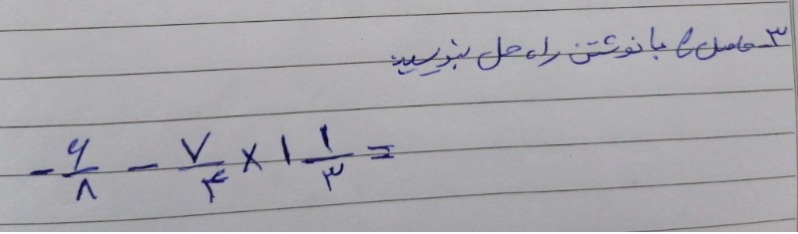 ۳- حاصل را با نوشتن راه حل بنویسید
- ۶/۸ - ۷/۴ × ۱ ۱/۳ =